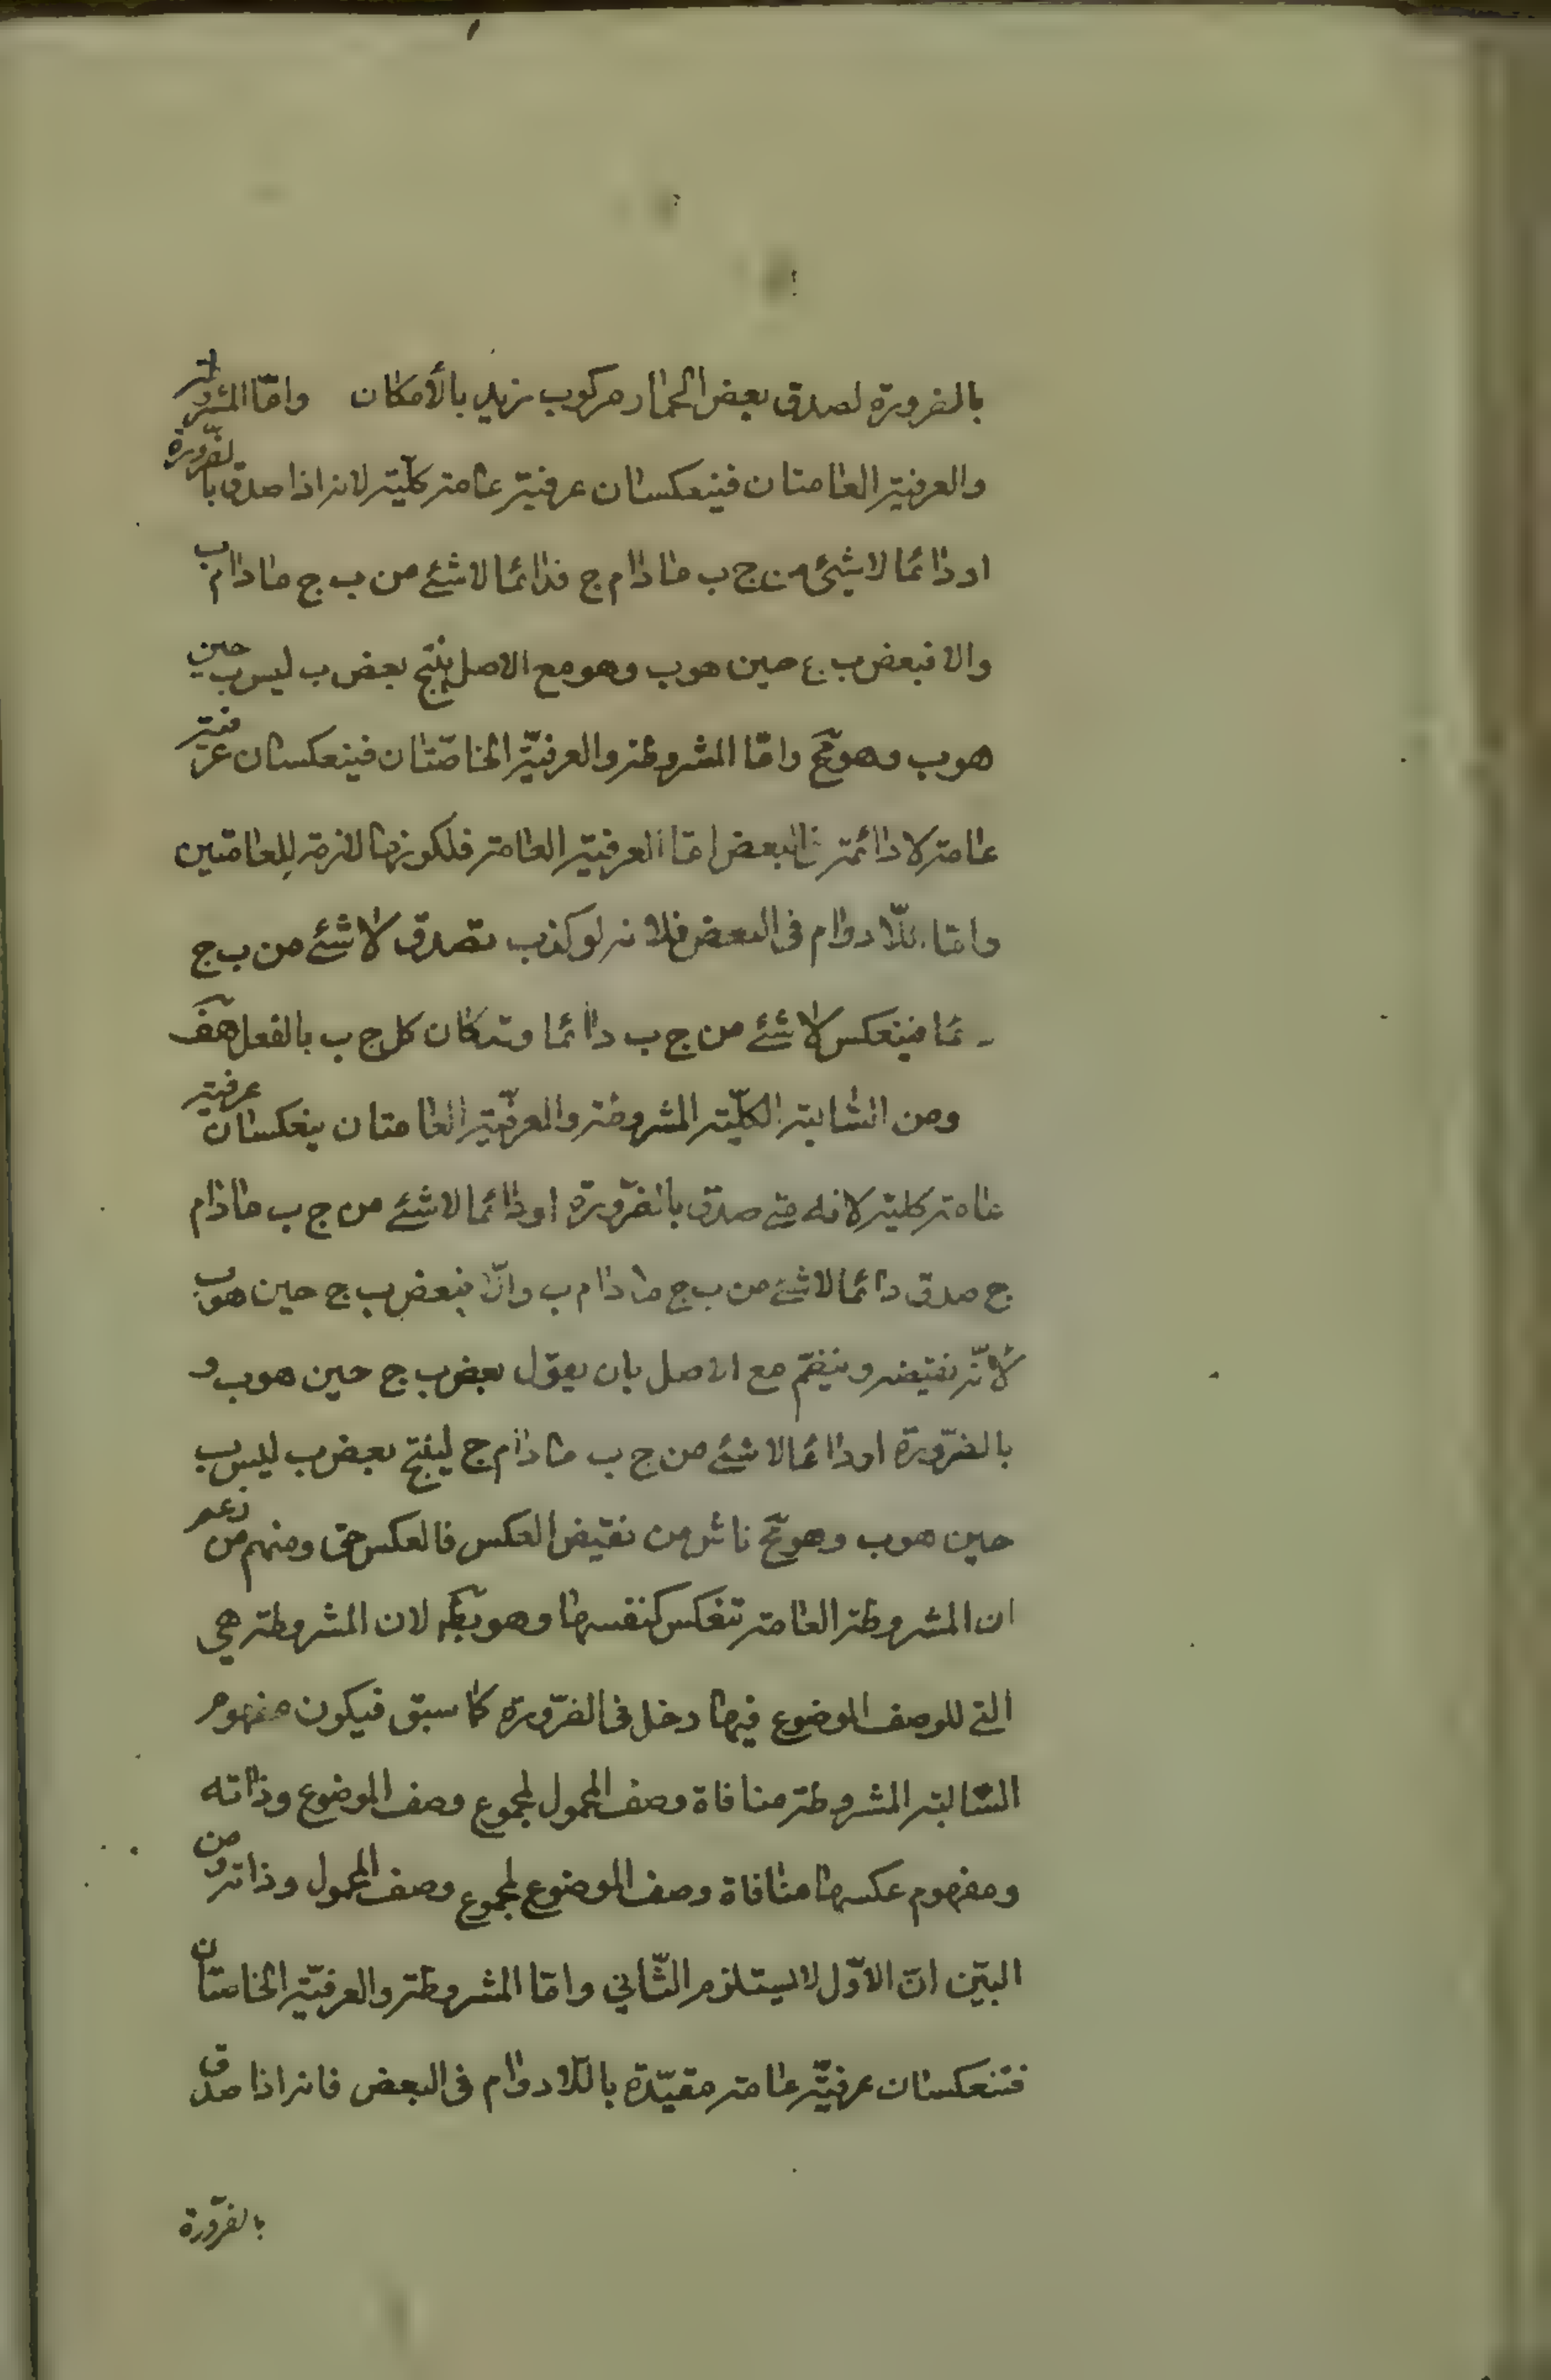 بالضرورة لصدق بعض الحمار مركوب زيد بالأمكان واما المشروطة
والعرفية العامتان فينعكسان عرفية عامة كلّية لانه اذا صدق بالضرورة
او دائما لا شيئ من ج ب ما دام ج فدائما لا شئ من ب ج ما دام ب
والا فبعض ب ج حين هو ب وهو مع الاصل ينتج بعض ب ليس ب حين
هو ب وهو مح وامّا المشروطة والعرفيّة الخاصّتان فينعكسان عرفية
عامة لا دائمة فى البعض امّا العرفية العامة فلكونها لازمة للعامتين
وامّا اللّا دوام فى البعض فلانه لو كذب لصدق لا شئ من ب ج
ئما فينعكس لا شئ من ج ب دائما وقد كان كل ج ب بالفعل هف
ومن السّالبة الكلّية المشروطة والعرفيّة العامتان ينعكسان عرفية
عامة كلية لانه متى صدق بالضّرورة او دائما لا شئ من ج ب ما دام
ج صدق دائما لا شئ من ب ج ما دام ب والّا فبعض ب ج حين هو ب
لانّه نقيضه وينضمّ مع الاصل بان يقول بعض ب ج حين هو ب و
بالضّرورة او دائما لا شئ من ج ب ما دام ج لينتج بعض ب ليس ب
حين هو ب وهو مح ناش من نقيض العكس فالعكس حق ومنهم من زعم
ان المشروطة العامة تنعكس كنفسها وهو بط لان المشروطة هي
التى للوصف الموضوع فيها دخل فى الضّرورة كما سبق فيكون مفهوم
السّالبة المشروطة منافاة وصف المحمول لمجموع وصف الموضوع وذاته
ومفهوم عكسها منافاة وصف الموضوع لمجموع وصف المحمول وذاته ومن
البيّن انّ الاوّل لا يستلزم الثّاني وامّا المشروطة والعرفيّة الخاصتان
فتنعكسان عرفيّة عامة مقيّدة باللّا دوام فى البعض فانه اذا صدق
بالضّرورة